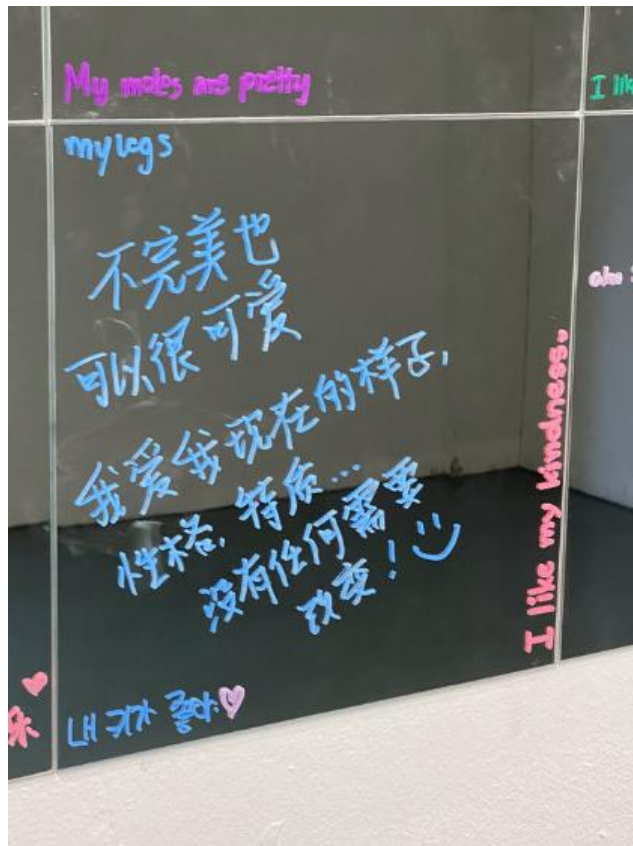 My moles are pretty
I lik
my legs
不完美也
可以很可爱
我爱我现在的样子,
性格, 特质...
没有任何需要
改变!
I like my kindness.
내 키가 좋아